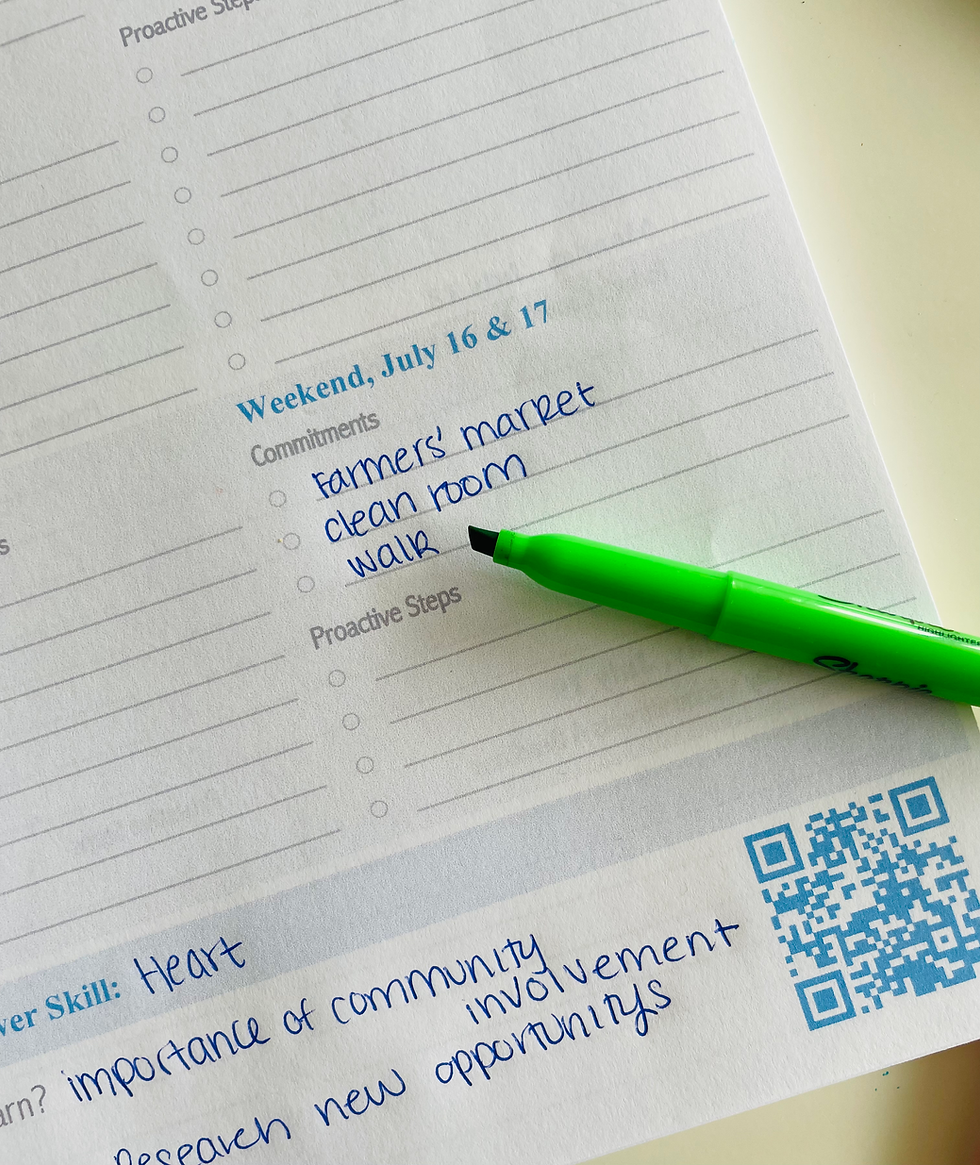 Proactive Steps
Weekend, July 16 & 17
Commitments
Farmers' market
clean room
walk
Proactive Steps
HIGHLIGHTER
Sharpie
ver Skill: Heart
arn? importance of community
involvement
Research new opportunitys